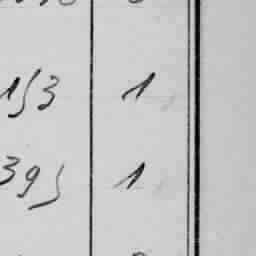 153 1
395 1